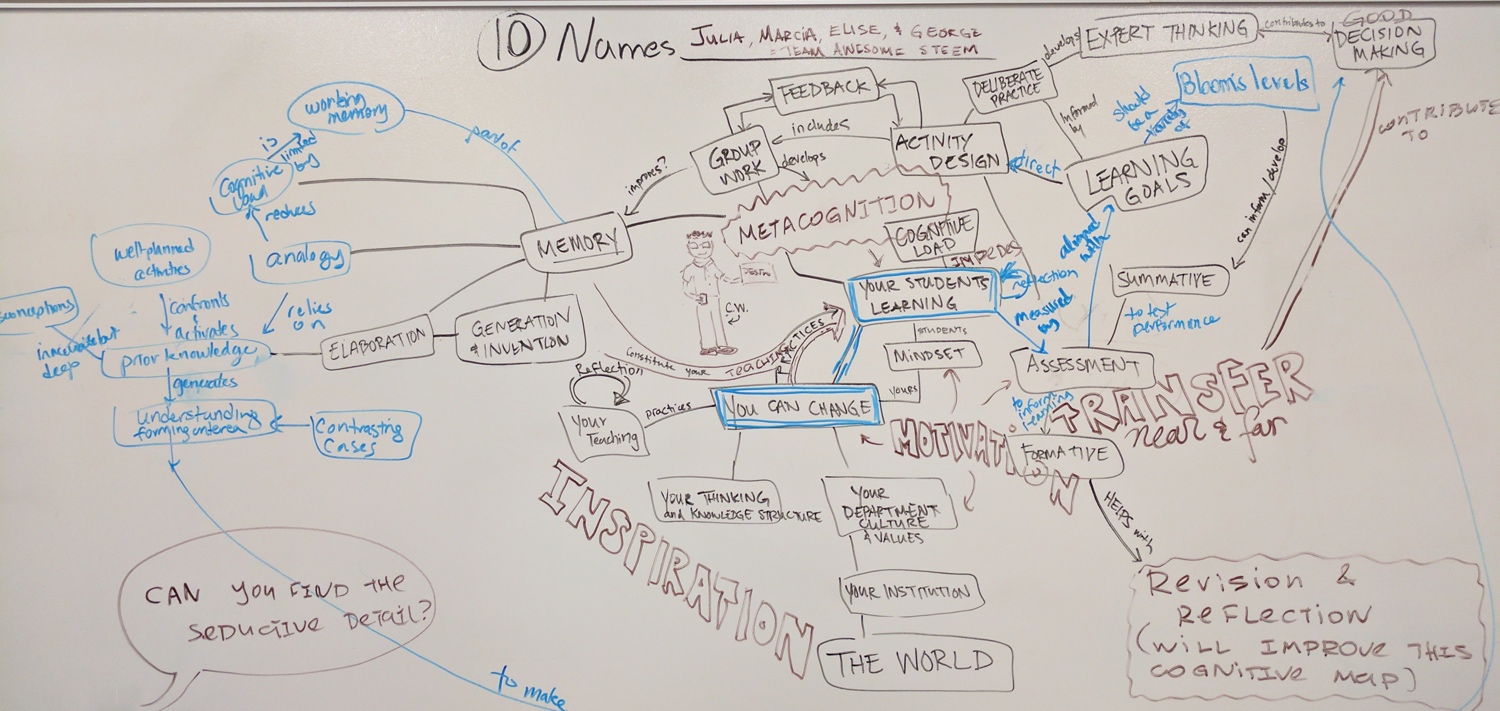 10 Names JULIA, MARCIA, ELISE, & GEORGE
= TEAM AWESOME STEEM
EXPERT THINKING
contributes to
GOOD
DECISION
MAKING
develops
DELIBERATE
PRACTICE
Bloom's levels
FEEDBACK
working
memory
part of
is
limited
by
Cognitive
load
reduces
includes
GROUP
WORK
develops
improves?
ACTIVITY
DESIGN
Informed
by
should
be a
variety
of
direct
LEARNING
GOALS
CONTRIBUTE
TO
can inform/develop
METACOGNITION
COGNITIVE
LOAD
IMPEDES
MEMORY
analogy
well-planned
activities
confronts
&
activates
relies
on
inaccurate but
deep
prior knowledge
generates
ELABORATION
GENERATION
& INVENTION
C.W.
YOUR STUDENTS'
LEARNING
reflection
aligned
with
measured
by
SUMMATIVE
to test
performance
STUDENTS
MINDSET
YOURS
ASSESSMENT
Constitute your TEACHING PRACTICES
Reflection
Your
Teaching
practices
YOU CAN CHANGE
understanding
Contrasting
Cases
to
inform
MOTIVATION
TRANSFER
near & far
FORMATIVE
HELPS with
INSPIRATION
YOUR THINKING
and KNOWLEDGE STRUCTURE
YOUR
DEPARTMENT
CULTURE
& VALUES
YOUR INSTITUTION
THE WORLD
CAN YOU FIND THE
SEDUCTIVE DETAIL?
to make
Revision &
REFLECTION
(WILL IMPROVE THIS
COGNITIVE MAP)